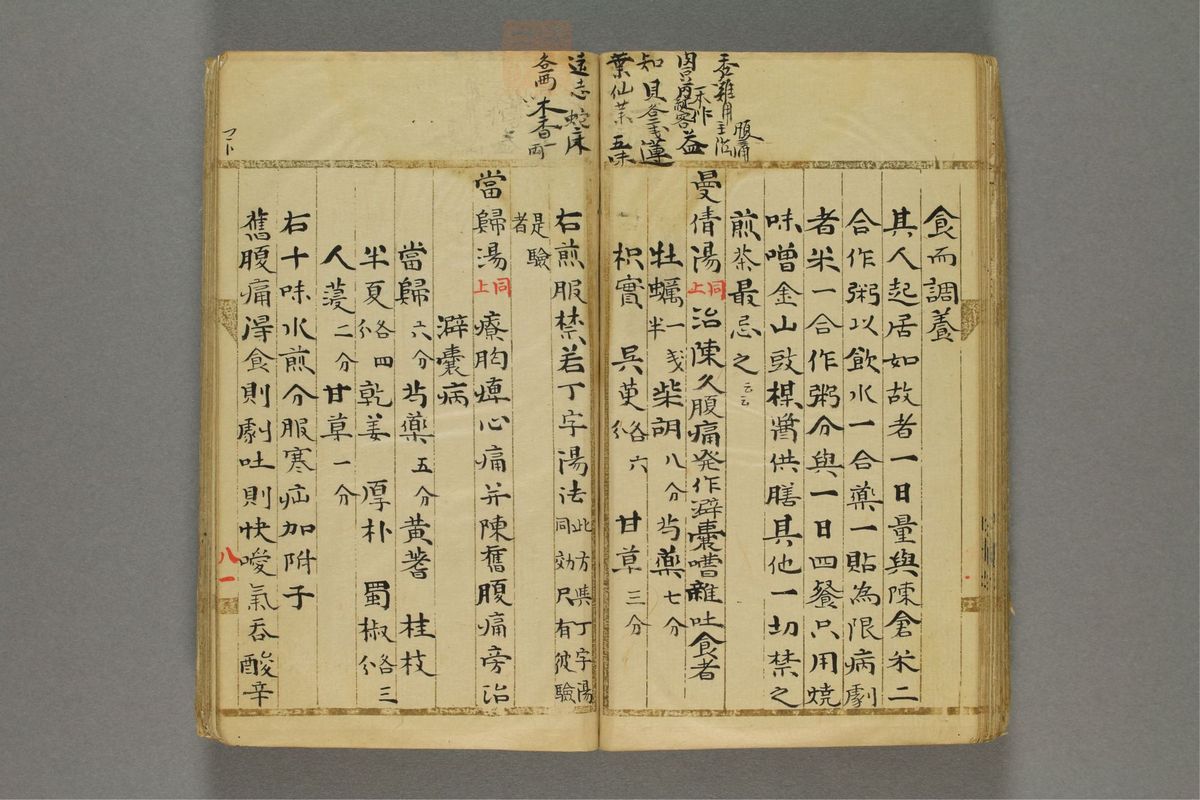 食而調養
其人起居如故者一日量與陳倉米二
合作粥以飲水一合藥一貼為限病劇
者米一合作粥分與一日四餐只用燒
味噌金山豉楳醬供膳其他一切禁之
煎茶最忌之云云
曼倩湯 同上 治陳久腹痛発作澼囊嘈雜吐食者
牡蠣一戔半 柴胡八分 芍藥七分
枳實 吳茰各六分 甘草三分
右煎服禁若丁字湯法 此方與丁字湯同効尺有彼驗
是驗者
當歸湯 同上 療胸痺心痛并陳舊腹痛旁治
澼囊病
當歸六分 芍藥五分 黃蓍 桂枝
半夏各四分 乾姜 厚朴 蜀椒各三分
人蓡二分 甘草一分
右十味水煎分服寒疝加附子
舊腹痛得食則劇吐則快噯氣吞酸辛
腹痛
主治
益
知貝各三戔蓮
葉仙茅五味
遠志蛇床
各兩木香一兩
八一